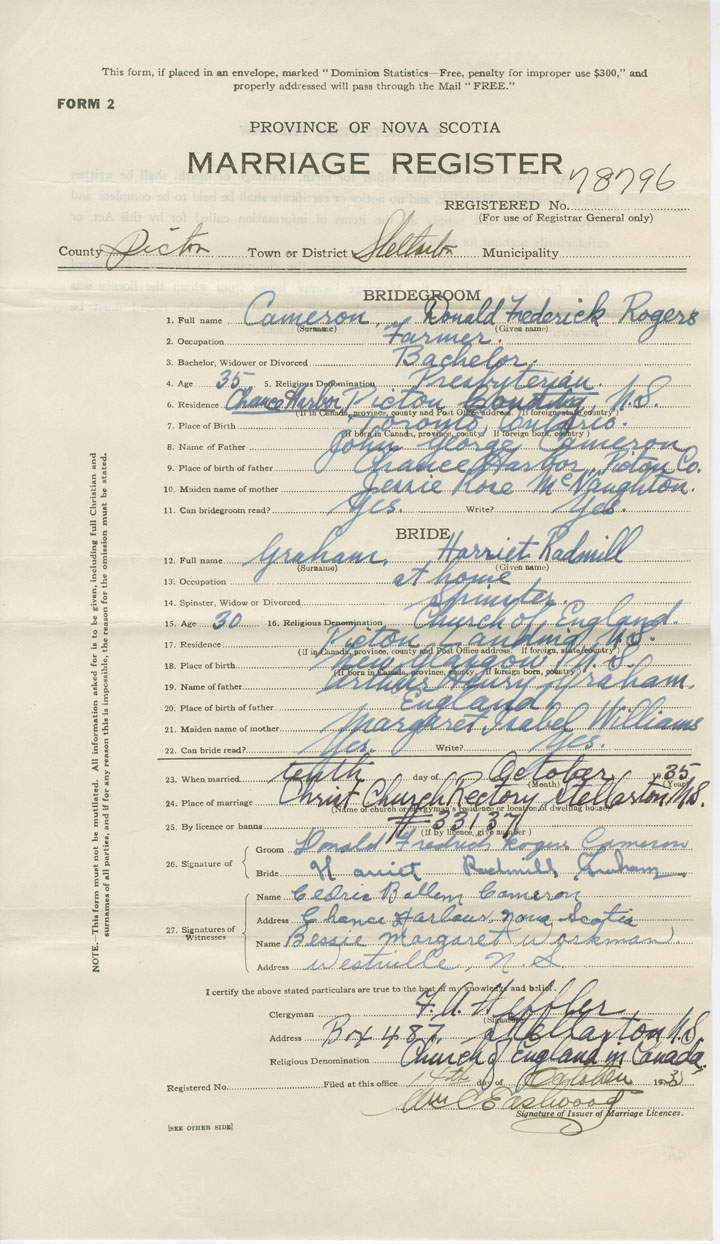 This form, if placed in an envelope, marked "Dominion Statistics—Free, penalty for improper use $300," and
properly addressed will pass through the Mail "FREE."
FORM 2
PROVINCE OF NOVA SCOTIA
MARRIAGE REGISTER
78796
REGISTERED No.
(For use of Registrar General only)
County Pictou Town or District Stellarton Municipality
BRIDEGROOM
1. Full name Cameron, Donald Frederick Rogers
(Surname) (Given name)
2. Occupation Farmer.
3. Bachelor, Widower or Divorced Bachelor.
4. Age 35 5. Religious Denomination Presbyterian
6. Residence Chance Harbor, Pictou N.S.
(If in Canada, province, county and Post Office address. If foreign, state country)
7. Place of Birth Toronto, Ontario.
(If born in Canada, province, county. If foreign born, country)
8. Name of Father John George Cameron
9. Place of birth of father Chance Harbor, Pictou Co.
10. Maiden name of mother Jessie Rose McNaughton.
11. Can bridegroom read? Yes. Write? Yes.
BRIDE
12. Full name Graham, Harriet Radmill
(Surname) (Given name)
13. Occupation at home
14. Spinster, Widow or Divorced Spinster.
15. Age 30 16. Religious Denomination Church of England.
17. Residence Pictou Landing, N.S.
(If in Canada, province, county and Post Office address. If foreign, state country)
18. Place of birth New Glasgow, N.S.
(If born in Canada, province, county. If foreign born, country)
19. Name of father Arthur Henry Graham.
20. Place of birth of father England
21. Maiden name of mother Margaret Isabel Williams
22. Can bride read? Yes. Write? Yes.
23. When married tenth day of October 1935
(Month) (Year)
24. Place of marriage Christ Church Rectory, Stellarton, N.S.
(Name of church or clergyman's residence or location of dwelling house)
25. By licence or banns #33137
(If by licence, give number)
26. Signature of
Groom Donald Fredrick Rogers Cameron
Bride Harriet Radmill Graham
27. Signatures of Witnesses
Name Cedric Ballem Cameron
Address Chance Harbour, Nova Scotia
Name Bessie Margaret Workman
Address Westville, N S
I certify the above stated particulars are true to the best of my knowledge and belief.
Clergyman F. A. Heffler
(Signature)
Address Box 487, Stellarton N.S.
Religious Denomination Church of England in Canada.
Registered No. Filed at this office 14th day of October 1935
Wm C Eastwood
Signature of Issuer of Marriage Licences.
[SEE OTHER SIDE]
NOTE.—This form must not be mutilated. All information asked for is to be given, including full Christian and
surnames of all parties, and if for any reason this is impossible, the reason for the omission must be stated.